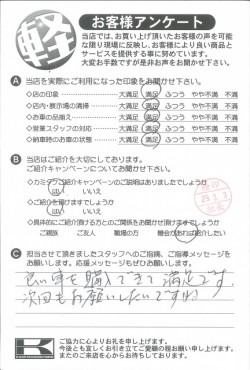 軽
お客様アンケート
当店では、お買い上げ頂いたお客様の声を可能
な限り現場に反映し、お客様により良い商品と
サービスを提供する事に努めています。
大変お手数ですが是非お声をお聞かせ下さい。
A 当店を実際にご利用になった印象をお聞かせ下さい。
・店の印象 大満足 満足 ふつう やや不満 不満
・店内・展示場の清掃 大満足 満足 ふつう やや不満 不満
・お車の品揃え 大満足 満足 ふつう やや不満 不満
・営業スタッフの対応 大満足 満足 ふつう やや不満 不満
・納車時のお車の状態 大満足 満足 ふつう やや不満 不満
B 当店はご紹介を大切にしております。
ご紹介キャンペーンについてお聞かせ下さい。
・カミタケご紹介キャンペーンのご説明はありましたでしょうか
はい いいえ
・ご紹介を頂けますでしょうか
はい いいえ
・具体的にご紹介頂ける方とのご関係をお聞かせ頂けますでしょうか
ご親族 ご友人 職場の方 機会があれば紹介したい
C 担当させて頂きましたスタッフへのご指摘、ご指導メッセージを
お願いします。応援メッセージもぜひお願いします。
良い車を購入できて満足です。
次回もお願いしたいですね
K
ご協力に心よりお礼を申し上げます。
今後とも宜しくお引き立てご愛顧の程お願い申し上げます。
またのご来店を心からお待ちしております。